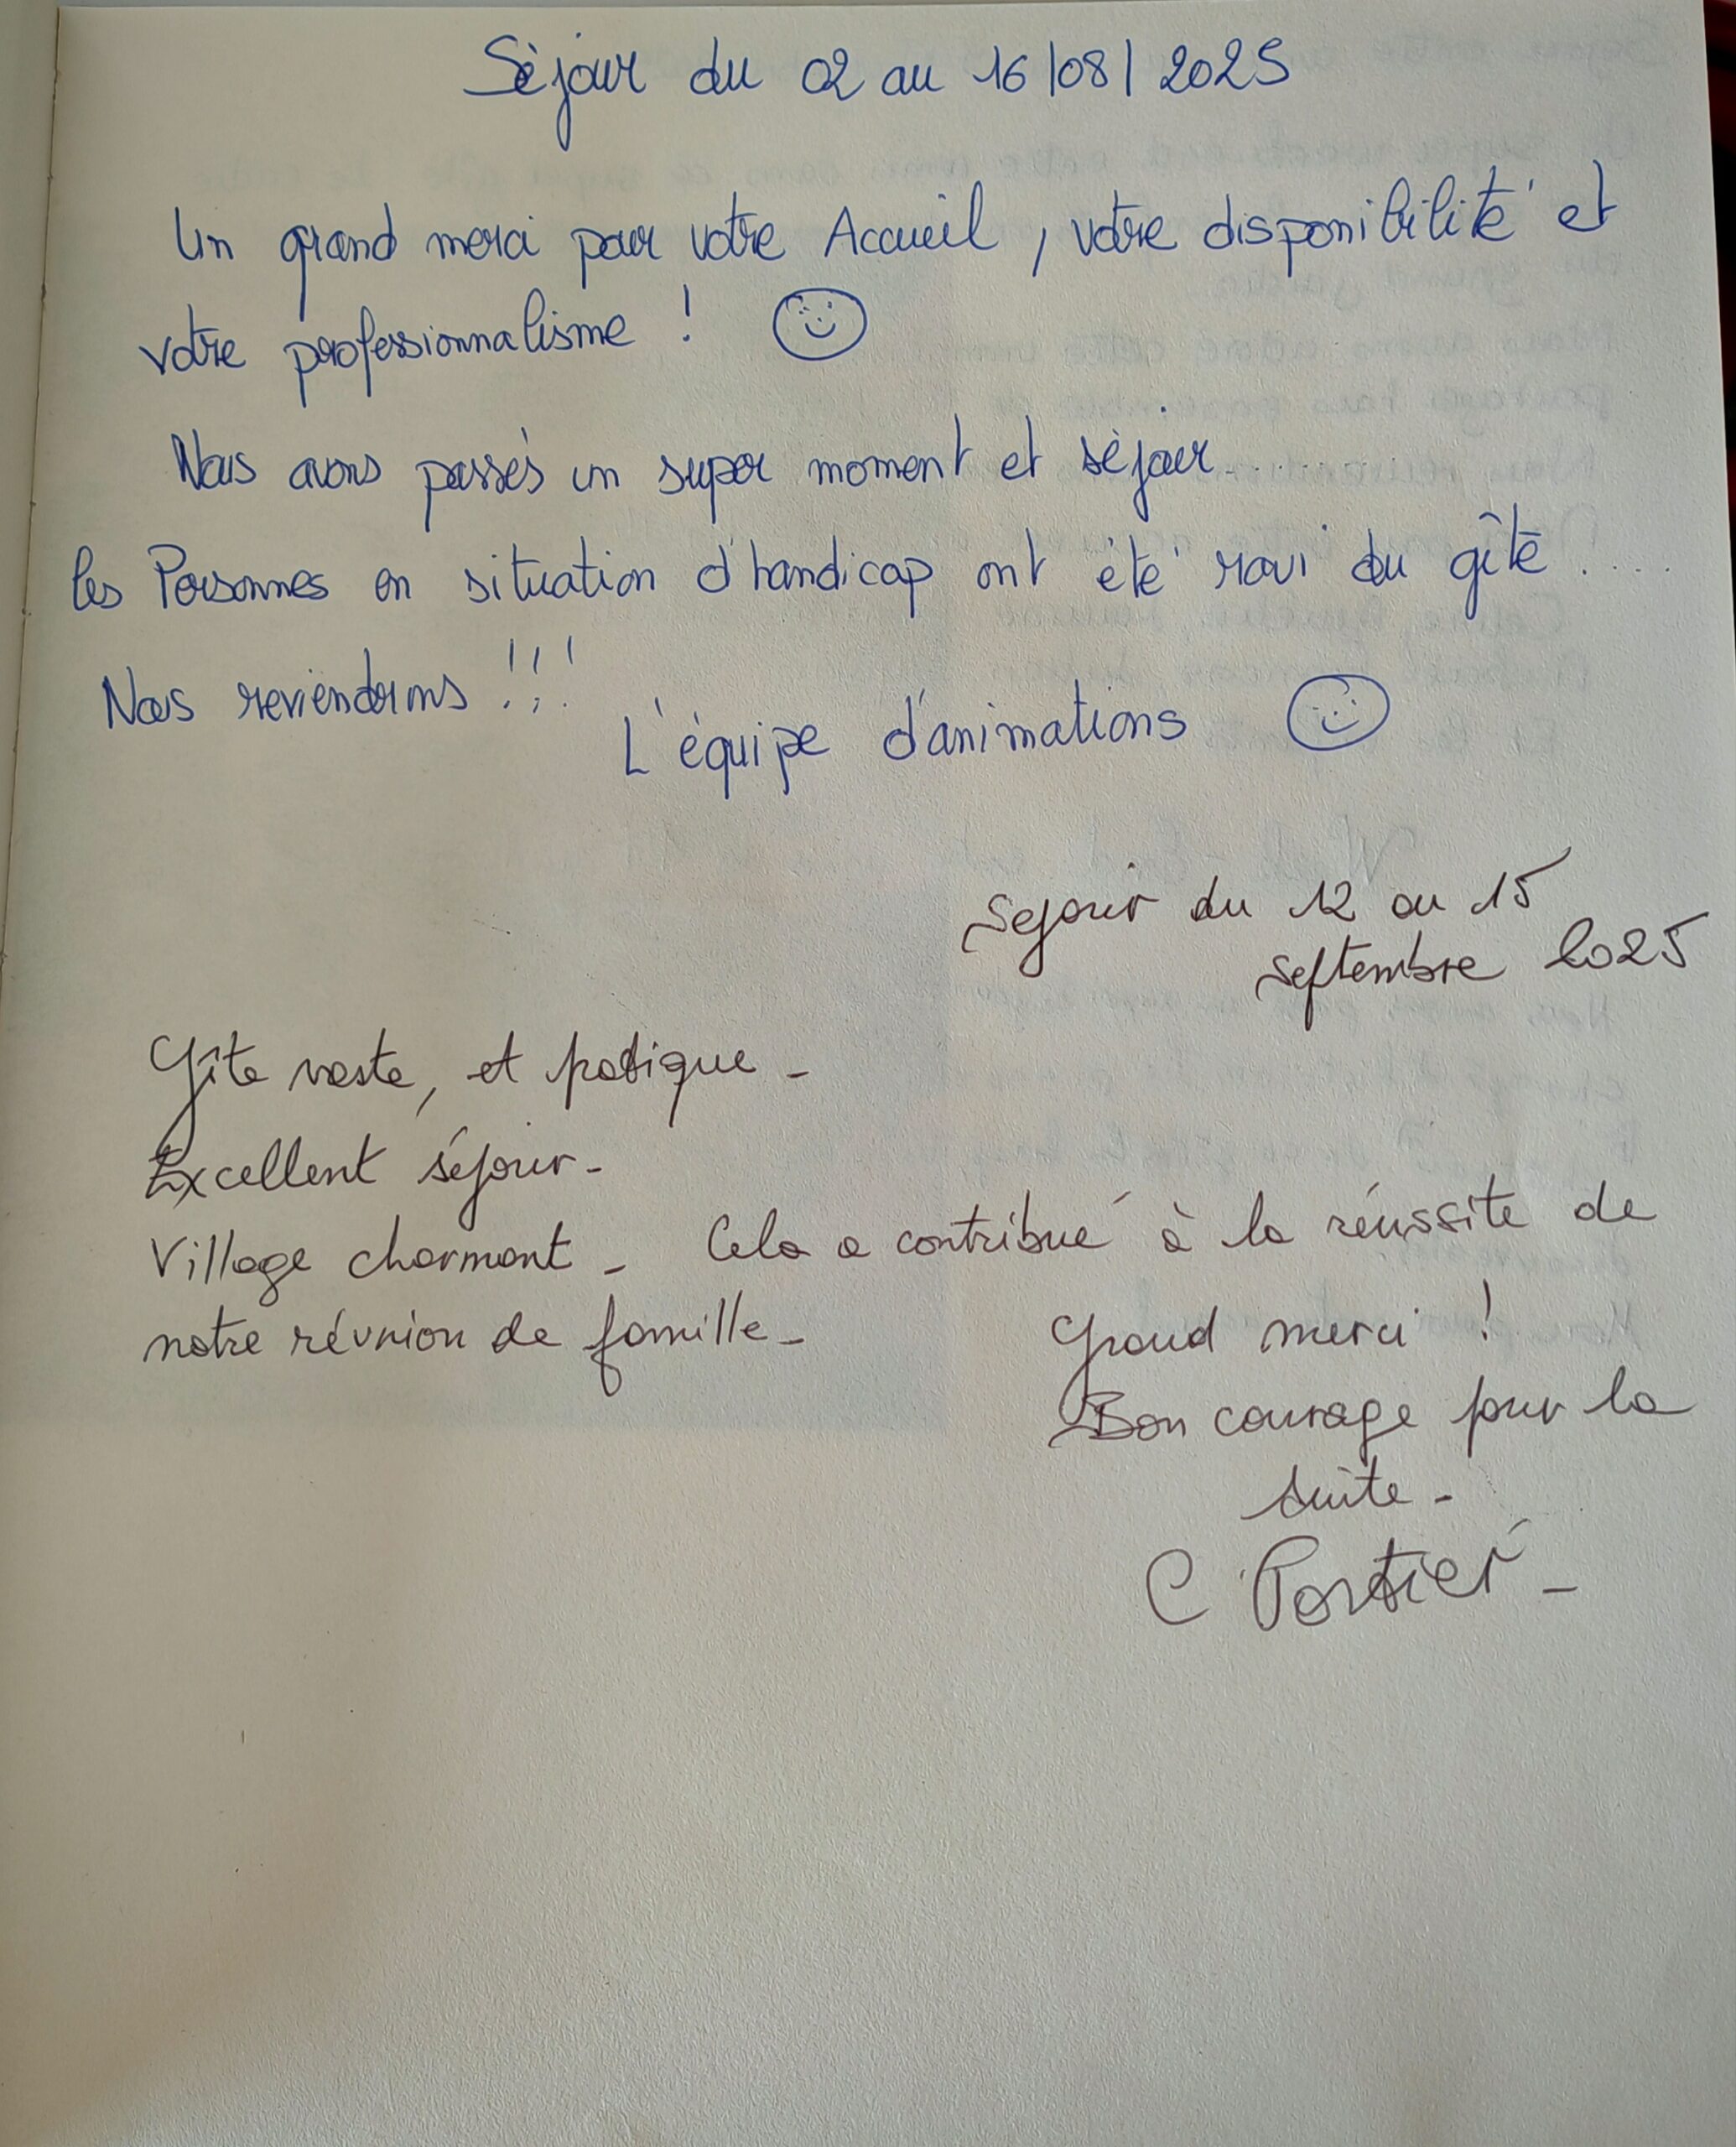 Séjour du 02 au 16/08/2025
Un grand merci pour votre Accueil, votre disponibilité et
votre professionnalisme !
Nous avons passés un super moment et séjour..........
les Personnes en situation d'handicap ont été ravi du gîte.....
Nous reviendrons !!!
L'équipe d'animations
Sejour du 12 au 15
septembre 2025
Gîte vaste, et pratique -
Excellent séjour -
Village charmant - Cela a contribué à la réussite de
notre réunion de famille -
Grand merci !
Bon courage pour la
suite -
C Portier -